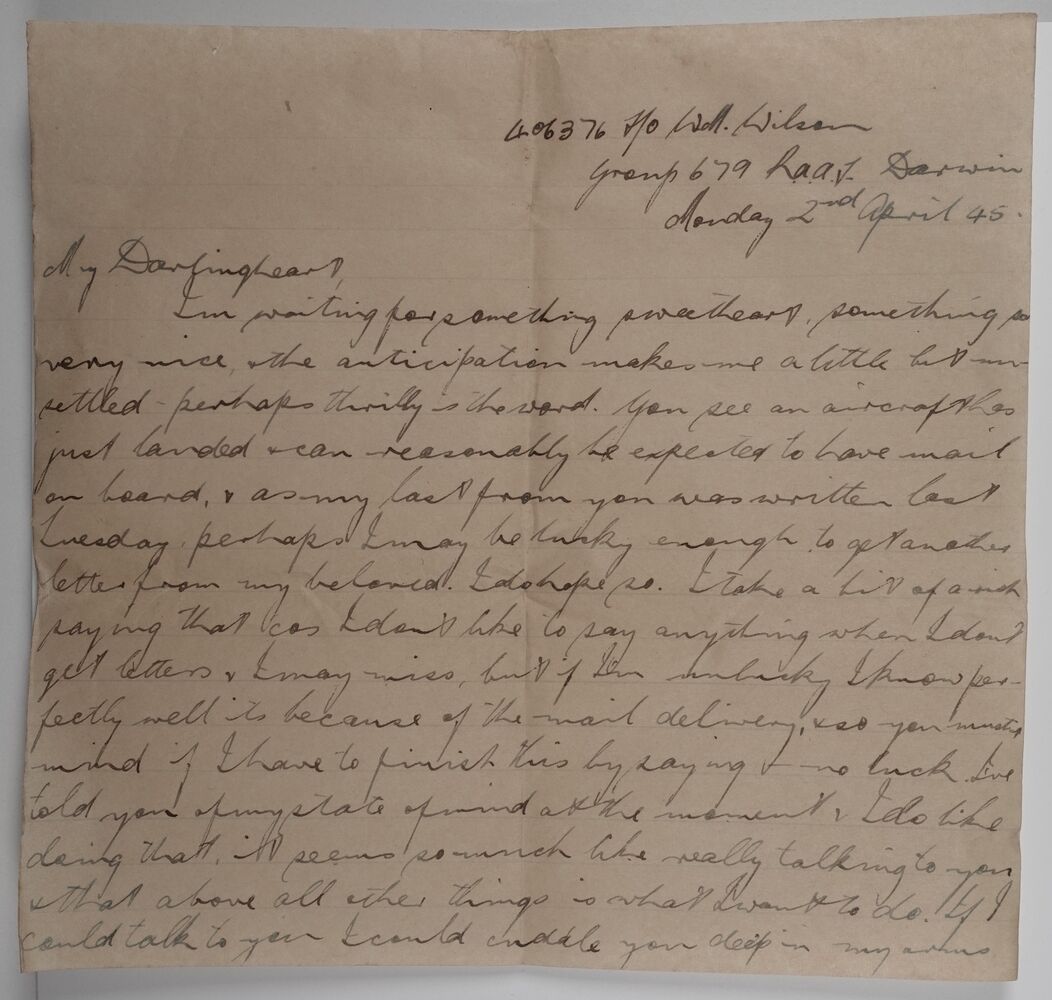 406376 F/O W.M. Wilson
Group 679 R.A.A.F. Darwin
Monday 2nd April 45.
My Darlingheart,
I'm waiting for something sweetheart, something so
very nice, & the anticipation makes me a little bit un-
settled - perhaps thrilly is the word. You see an aircraft has
just landed & can reasonably be expected to have mail
on board, & as my last from you was written last
Tuesday, perhaps I may be lucky enough to get another
letter from my beloved. I do hope so. I take a bit of a risk
saying that 'cos I don't like to say anything when I don't
get letters & I may miss, but if I'm unlucky I know per-
fectly well its because of the mail delivery, & so you mustn't
mind if I have to finish this by saying - no luck. I've
told you of my state of mind at the moment & I do like
doing that, it seems so much like really talking to you
& that above all other things is what I want to do. If I
could talk to you I could cuddle you deep in my arms